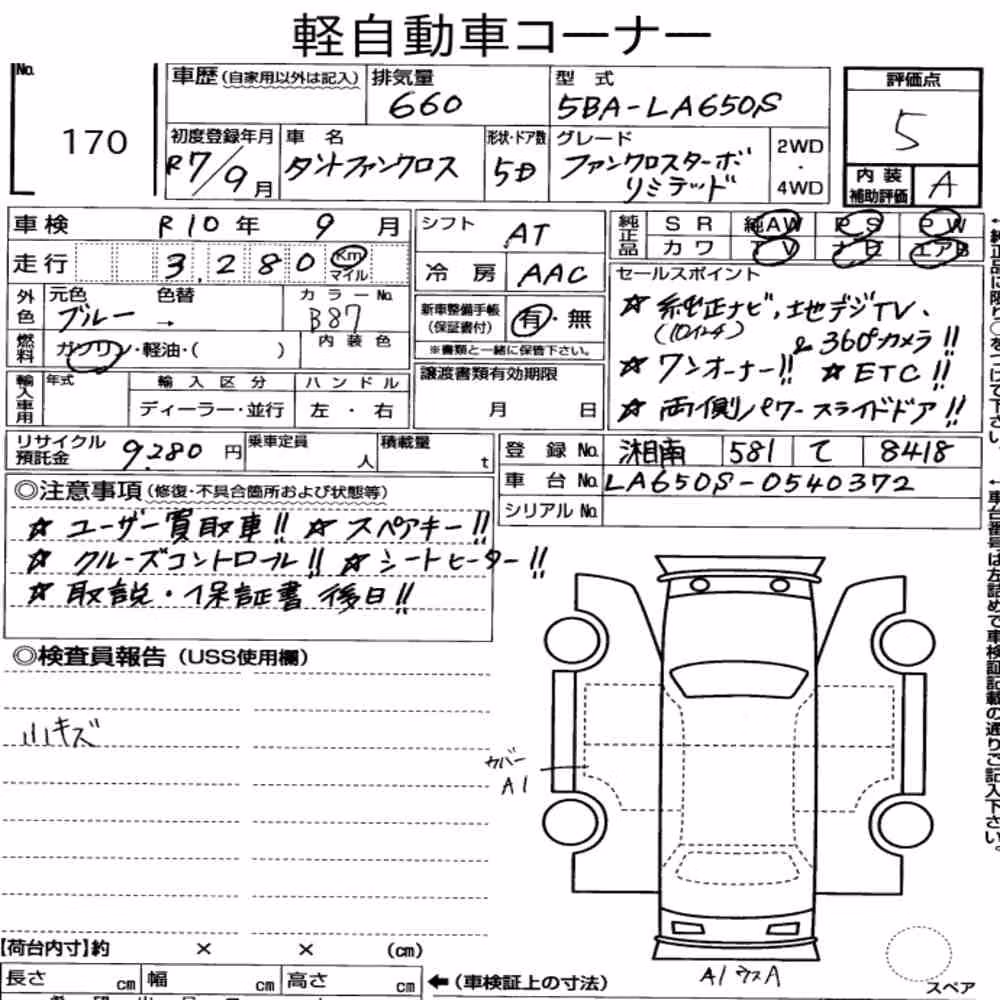 軽自動車コーナー
No. 170
車歴(自家用以外は記入)
排気量 660
型式 5BA-LA650S
評価点 5
初度登録年月 R7/9月
車名 タントファンクロス
形状・ドア数 5D
グレード ファンクロスターボ
リミテッド
2WD
・
4WD
内装
補助評価 A
車検 R10年 9月
シフト AT
純正品
SR 純AW PS PW
カワ TV ナビ エアB
走行 3,280 Km
マイル
冷房 AAC
外色
元色 ブルー
色替 →
カラーNo. B87
新車整備手帳
(保証書付)
有・無
※書類と一緒に保管下さい。
燃料
ガソリン・軽油・( )
内装色
輸入車用
年式
輸入区分
ハンドル
ディーラー・並行
左・右
譲渡書類有効期限
月 日
セールスポイント
☆ 純正ナビ、地デジTV、
(10インチ) & 360°カメラ!!
☆ ワンオーナー!! ☆ ETC!!
☆ 両側パワースライドドア!!
リサイクル
預託金 9,280円
乗車定員 人
積載量 t
登録No. 湘南 581 て 8418
車台No. LA650S-0540372
シリアルNo.
◎注意事項(修復・不具合箇所および状態等)
☆ ユーザー買取車!! ☆ スペアキー!!
☆ クルーズコントロール!! ☆ シートヒーター!!
☆ 取説・保証書 後日!!
◎検査員報告(USS使用欄)
小キズ
カバー
A1
A1 ウスA
スペア
【荷台内寸】約 × × (cm)
長さ cm 幅 cm 高さ cm
←(車検証上の寸法)
←純正品に限り○をつけて下さい。
←車台番号は左詰めで車検証記載の通りご記入下さい。